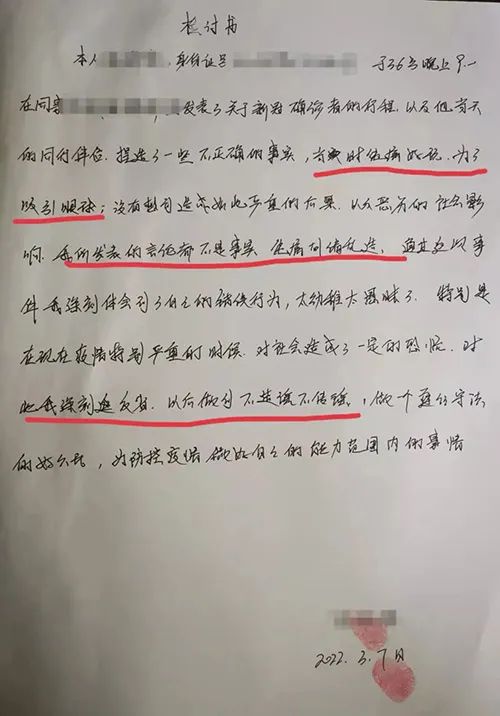 检讨书
本人 身份证号 于36号晚上9.
在同事 发表了关于新冠确诊者的行程.以及他当天
的同行伴侣.捏造了一些不正确的事实,
吸引眼球;没有想到造成如此严重的后果.以及恶劣的社会影
响.我所发表的言论都不是事实 通过这次事
件我深刻体会到了自己的错误行为,太幼稚太愚昧了.特别是
在现在疫情特别严重的时候.对社会造成了一定的恐慌.对
此我深刻造反省.以后做到不造谣不传谣,做一个遵纪守法
的好公民,为防控疫情做好自己的能力范围内的事情
2022.3.7日